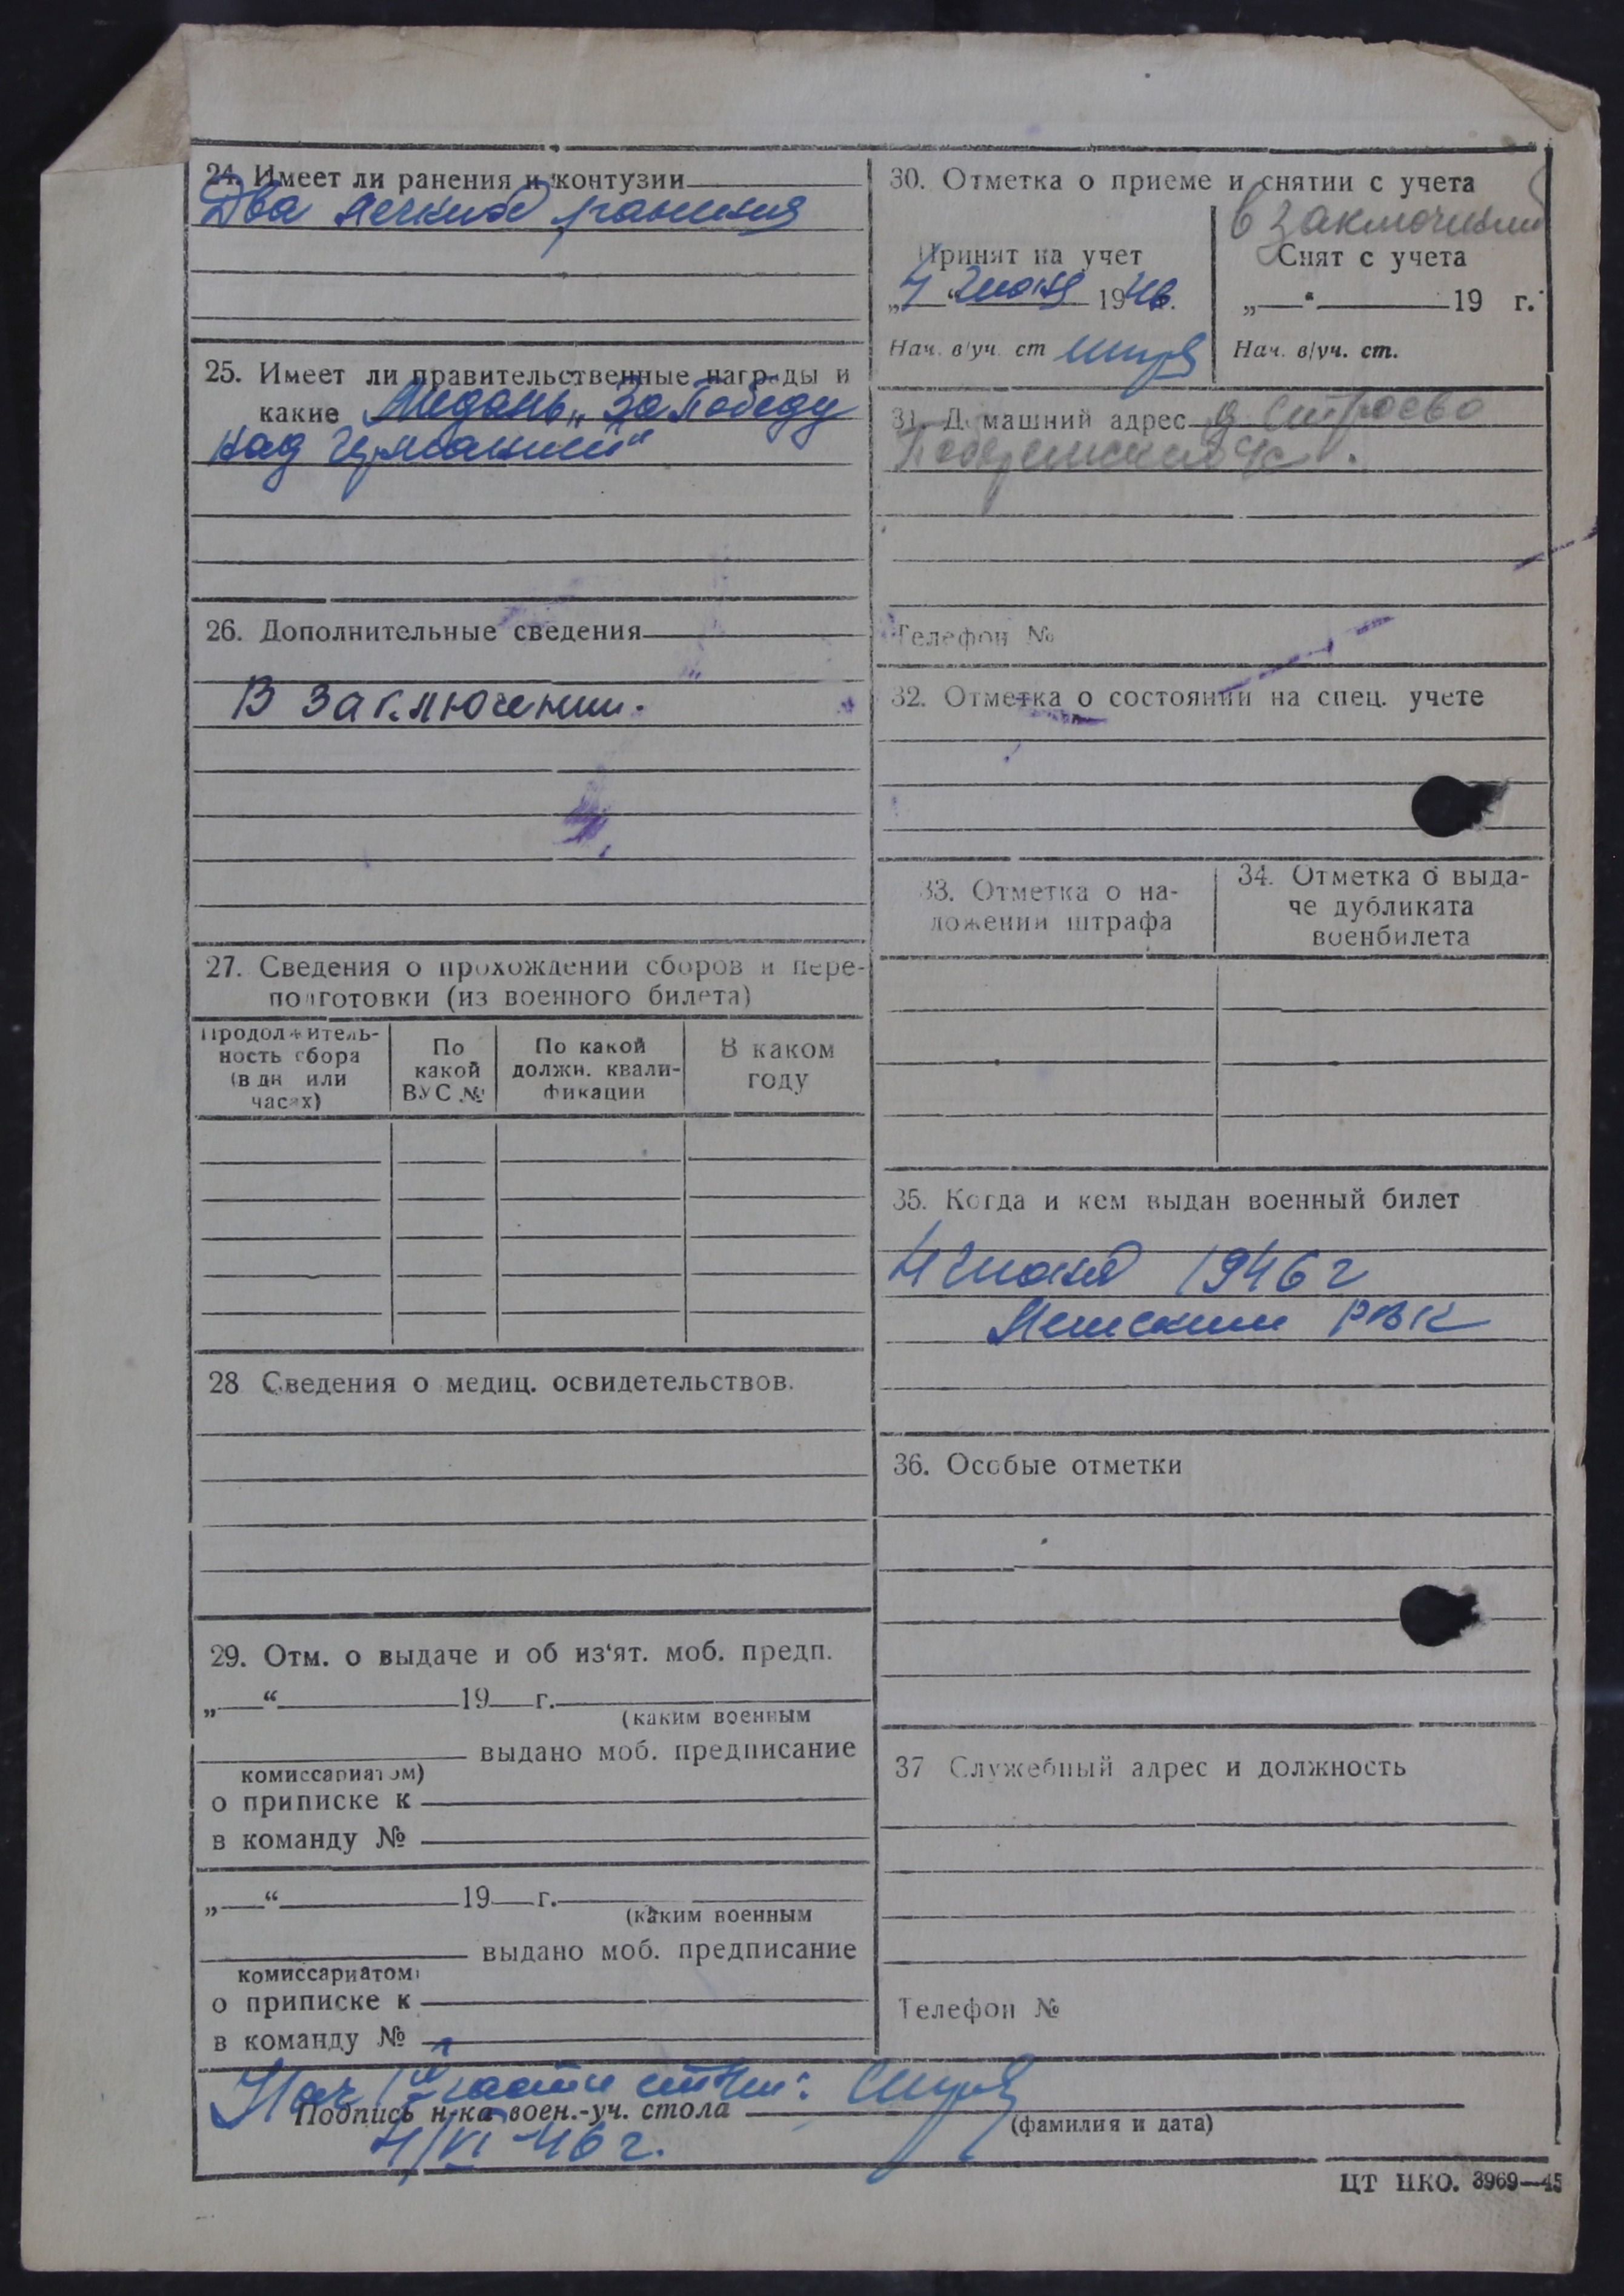 24. Имеет ли ранения и контузии
Два легких ранения
25. Имеет ли правительственные награды и
какие Медаль „За Победу
над Германией“
26. Дополнительные сведения
В заключении.
27. Сведения о прохождении сборов и пере-
подготовки (из военного билета)
Продолжитель-
ность сбора
(в дн или
часах)
По
какой
ВУС №
По какой
должн. квали-
фикации
В каком
году
28 Сведения о медиц. освидетельствов.
29. Отм. о выдаче и об из‘ят. моб. предп.
„ “ 19 г.
(каким военным
выдано моб. предписание
комиссариатом)
о приписке к
в команду №
„ “ 19 г.
(каким военным
выдано моб. предписание
комиссариатом)
о приписке к
в команду №
30. Отметка о приеме и снятии с учета
в заключении
Принят на учет
„4“ июня 1946.
Нач. в/уч. ст
Снят с учета
„ “ 19 г.
Нач. в/уч. ст.
31. Домашний адрес д
Телефон №
32. Отметка о состоянии на спец. учете
33. Отметка о на-
ложении штрафа
34. Отметка о выда-
че дубликата
военбилета
35. Когда и кем выдан военный билет
4 июня 1946 г
РВК
36. Особые отметки
37 Служебный адрес и должность
Телефон №
Нач части
Подпись н-ка воен.-уч. стола
(фамилия и дата)
4/VI-46 г.
ЦТ НКО. 3969—45